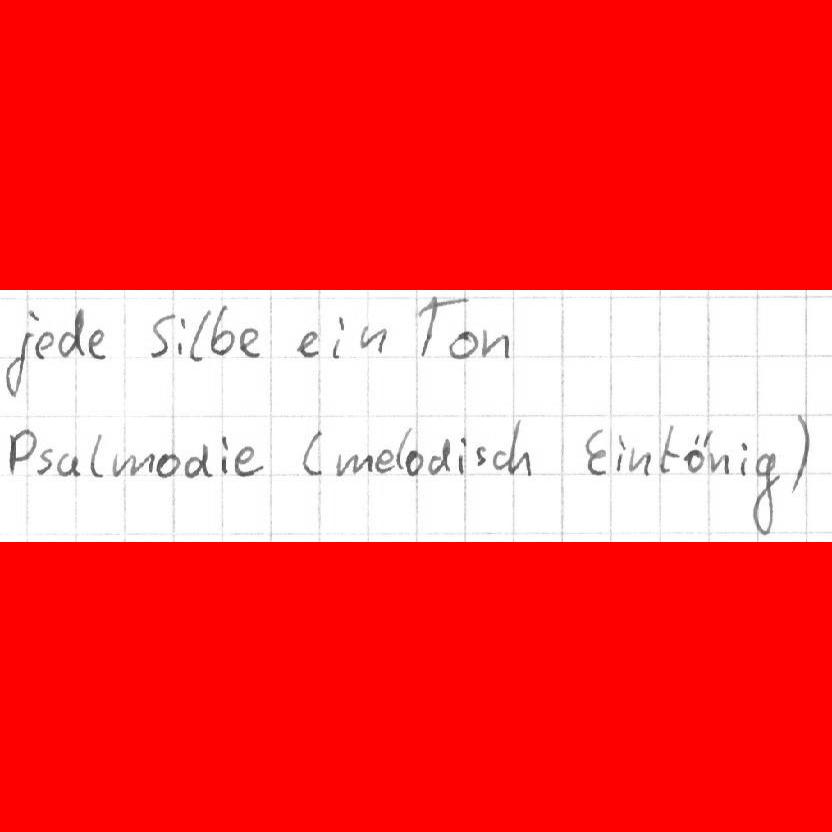 jede Silbe ein Ton
Psalmodie (melodisch Eintönig)